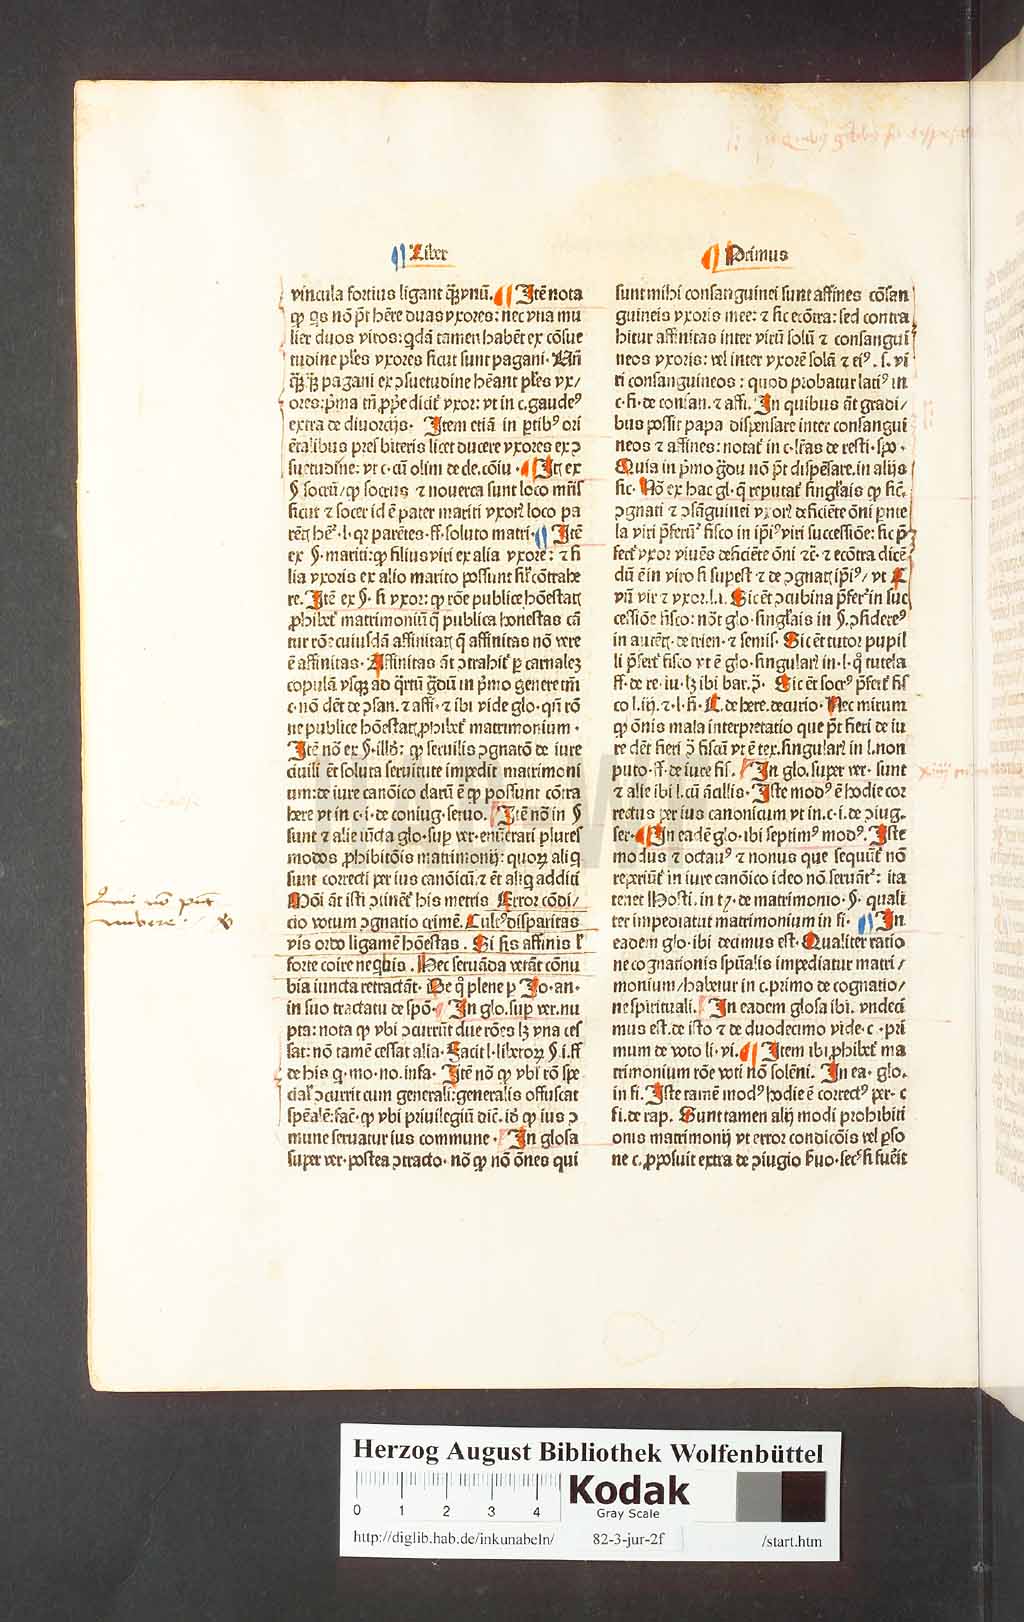 Liber
Primus
vincula fortius ligant q̃ꝫ vnũ. Itẽ nota
ꝙ q̃s nõ p̃t hẽre duas vxores: nec vna mu
lier duos viros: q̃dã tamen habẽt ex cõsue
tudine ples vxores sicut sunt pagani.
pagani ex ↄsuetudine hẽant ples vx/
ores: p̃ma tñ ꝓp̃e dicit᷑ vxor: vt in c. gaudeꝰ
extra de diuorcijs. Item etiã in ptibꝰ ori
ẽtalibus presbiteris licet ducere vxores ex ↄ
suetudine: vt c. cũ olim de cle. cõiu. Itẽ ex
§ socrũ/ ꝙ socrus ⁊ nouerca sunt loco mr̃is
sicut ⁊ socer id ẽ pater mariti vxor loco pa
ff. soluto matri. Itẽ
ex §. mariti: ꝙ filius viri ex alia vxore: ⁊ fi
lia vxoris ex alio marito possunt sil̃ cõtrahe
re. Itẽ ex §. si vxor: ꝙ rõe publice hõestatꝭ
ꝓhibet᷑ matrimoniũ q̃ publica honestas cã
tur rõe cuiusdã affinitatꝭ q̃ affinitas nõ vere
ẽ affinitas. Affinitas ãt ↄtrahit᷑ p carnalez
copulã vsqꝫ ad q̃rtũ g̃dũ in p̃mo genere tm̃
c. nõ dẽt de ↄsan. ⁊ affi. ⁊ ibi vide glo. qñ rõ
ne publice hõestatꝭ ꝓhibet᷑ matrimonium.
Itẽ nõ ex §. illð: ꝙ seruilis ↄgnatõ de iure
ciuili ẽt soluta seruitute impedit matrimoni
um: de iure canõico darũ ẽ ꝙ possunt cõtra
here vt in c. i. de coniug. seruo. Itẽ nõ in §
sunt ⁊ alie iũcta glo. sup ver. enũerati plures
modos ꝓhibitõis matrimonij: quoꝝ aliq̃
sunt correcti per ius canõicũ ⁊ ẽt aliq̃ additi
Mõi ãt isti ↄtinẽt᷑ his metris Error cõdi/
cio votum ↄgnatio crimẽ. Cultꝰ disparitas
vis ordo ligamẽ hõestas. Si sis affinis l᷑
forte coire nequibis. Hec seruãda vetãt cõnu
bia iuncta retractãt. De q̃ plene p Io. an.
in suo tractatu de spõ. In glo. sup ver. nu
pta: nota ꝙ vbi ↄcurrũt due rões lꝫ vna ces
sat: nõ tamẽ cessat alia. Facit l. libertoꝝ §. i. ff
de his q. mo. no. infa. Itẽ nõ ꝙ vbi rõ spe
cial᷑ ↄcurrit cum generali: generalis offuscat
spẽalẽ: fac̃. ꝙ vbi priuilegiũ dic̃. iõ ꝙ ius ↄ
mune seruatur ius commune. In glosa
super ver. postea ↄtracto. nõ ꝙ nõ õnes qui
sunt mihi consanguinei sunt affines cõsan
guineis vxoris mee: ⁊ sic ecõtra: sed contra
hitur affinitas inter virũ solũ ⁊ consangui
neos vxoris: vel inter vxorẽ solã ⁊ eiꝰ. s. vi
ri consanguineos: quod probatur latiꝰ in
c. fi. de consan. ⁊ affi. In quibus ãt gradi/
bus possit papa dispensare inter consangui
neos ⁊ affines: notat᷑ in c. lr̃as de resti. spo.
Quia in p̃mo g̃dou nõ p̃t dispẽsare. in alijs
sic. Nõ ex hac gl. q̃ reputat᷑ singl᷑ais ꝙ sic̃.
ↄgnati ⁊ ↄsãguinei vxor deficiẽte õni pñte
la viri p̃ferũt᷑ fisco in ip̃iꝰ viri successiõe: sic p̃
fert᷑ vxor viuẽs deficiẽte õni ⁊c̃. ⁊ ecõtra dicẽ
dũ ẽ in viro si supest ⁊ de ↄgnatꝭ ip̃iꝰ/ vt C
vñ vir ⁊ vxor. l. i. Sic ẽt ↄcubina p̃fert᷑ in suc
cessiõe fisco: nõt glo. singl᷑ais in §. ↄsidereꝰ
in autẽtꝭ. de trien. ⁊ semis. Sic ẽt tutor pupil
li p̃fert᷑ fisco vt ẽ glo. singular᷑ in. l. q̃ tutela
ff. de re. iu. lꝫ ibi bar. ↄ̃. Sic ẽt socrꝰ p̃fert᷑ fis
co l. iij. ⁊ l. fi. C. de here. decurio. Nec mirum
ꝙ õnis mala interpretatio que p̃t fieri de iu
re dẽt fieri ↄ̃ fiscũ vt ẽ tex. singular᷑ in l. non
puto. ff. de iure fis. In glo. super ver. sunt
⁊ alie ibi l. cũ ãcillis. Iste modꝰ ẽ hodie cor
rectus per ius canonicum vt in. c. i. de ↄiug.
ser. In eadẽ glo. ibi septimꝰ modꝰ. Iste
modus ⁊ octauꝰ ⁊ nonus que sequũt᷑ nõ
reperiũt᷑ in iure canõico ideo nõ seruãt᷑: ita
tenet Hosti. in tꝭ. de matrimonio. §. quali
ter impediatur matrimonium in fi. In
eadem glo. ibi decimus est. Qualiter ratio
ne cognationis spũalis impediatur matri/
monium/ habetur in c. primo de cognatio/
ne spirituali. In eadem glosa ibi. vndeci
mus est. de isto ⁊ de duodecimo vide. c. pri
mum de voto li. vi. Item ibi ꝓhibet᷑ ma
trimonium rõe voti nõ solẽni. In ea. glo.
in fi. Iste tamẽ modꝰ hodie ẽ correctꝰ per. c
fi. de rap. Sunt tamen alij modi prohibiti
onis matrimonij vt error condicõis vel pso
ne c. ꝓposuit extra de ↄiugio s̃uo. secꝰ si fuẽit
Qui nõ p̃nt
nubere
Herzog August Bibliothek Wolfenbüttel
0 1 2 3 4
Kodak
Gray Scale
http://diglib.hab.de/inkunabeln/ 82-3-jur-2f /start.htm